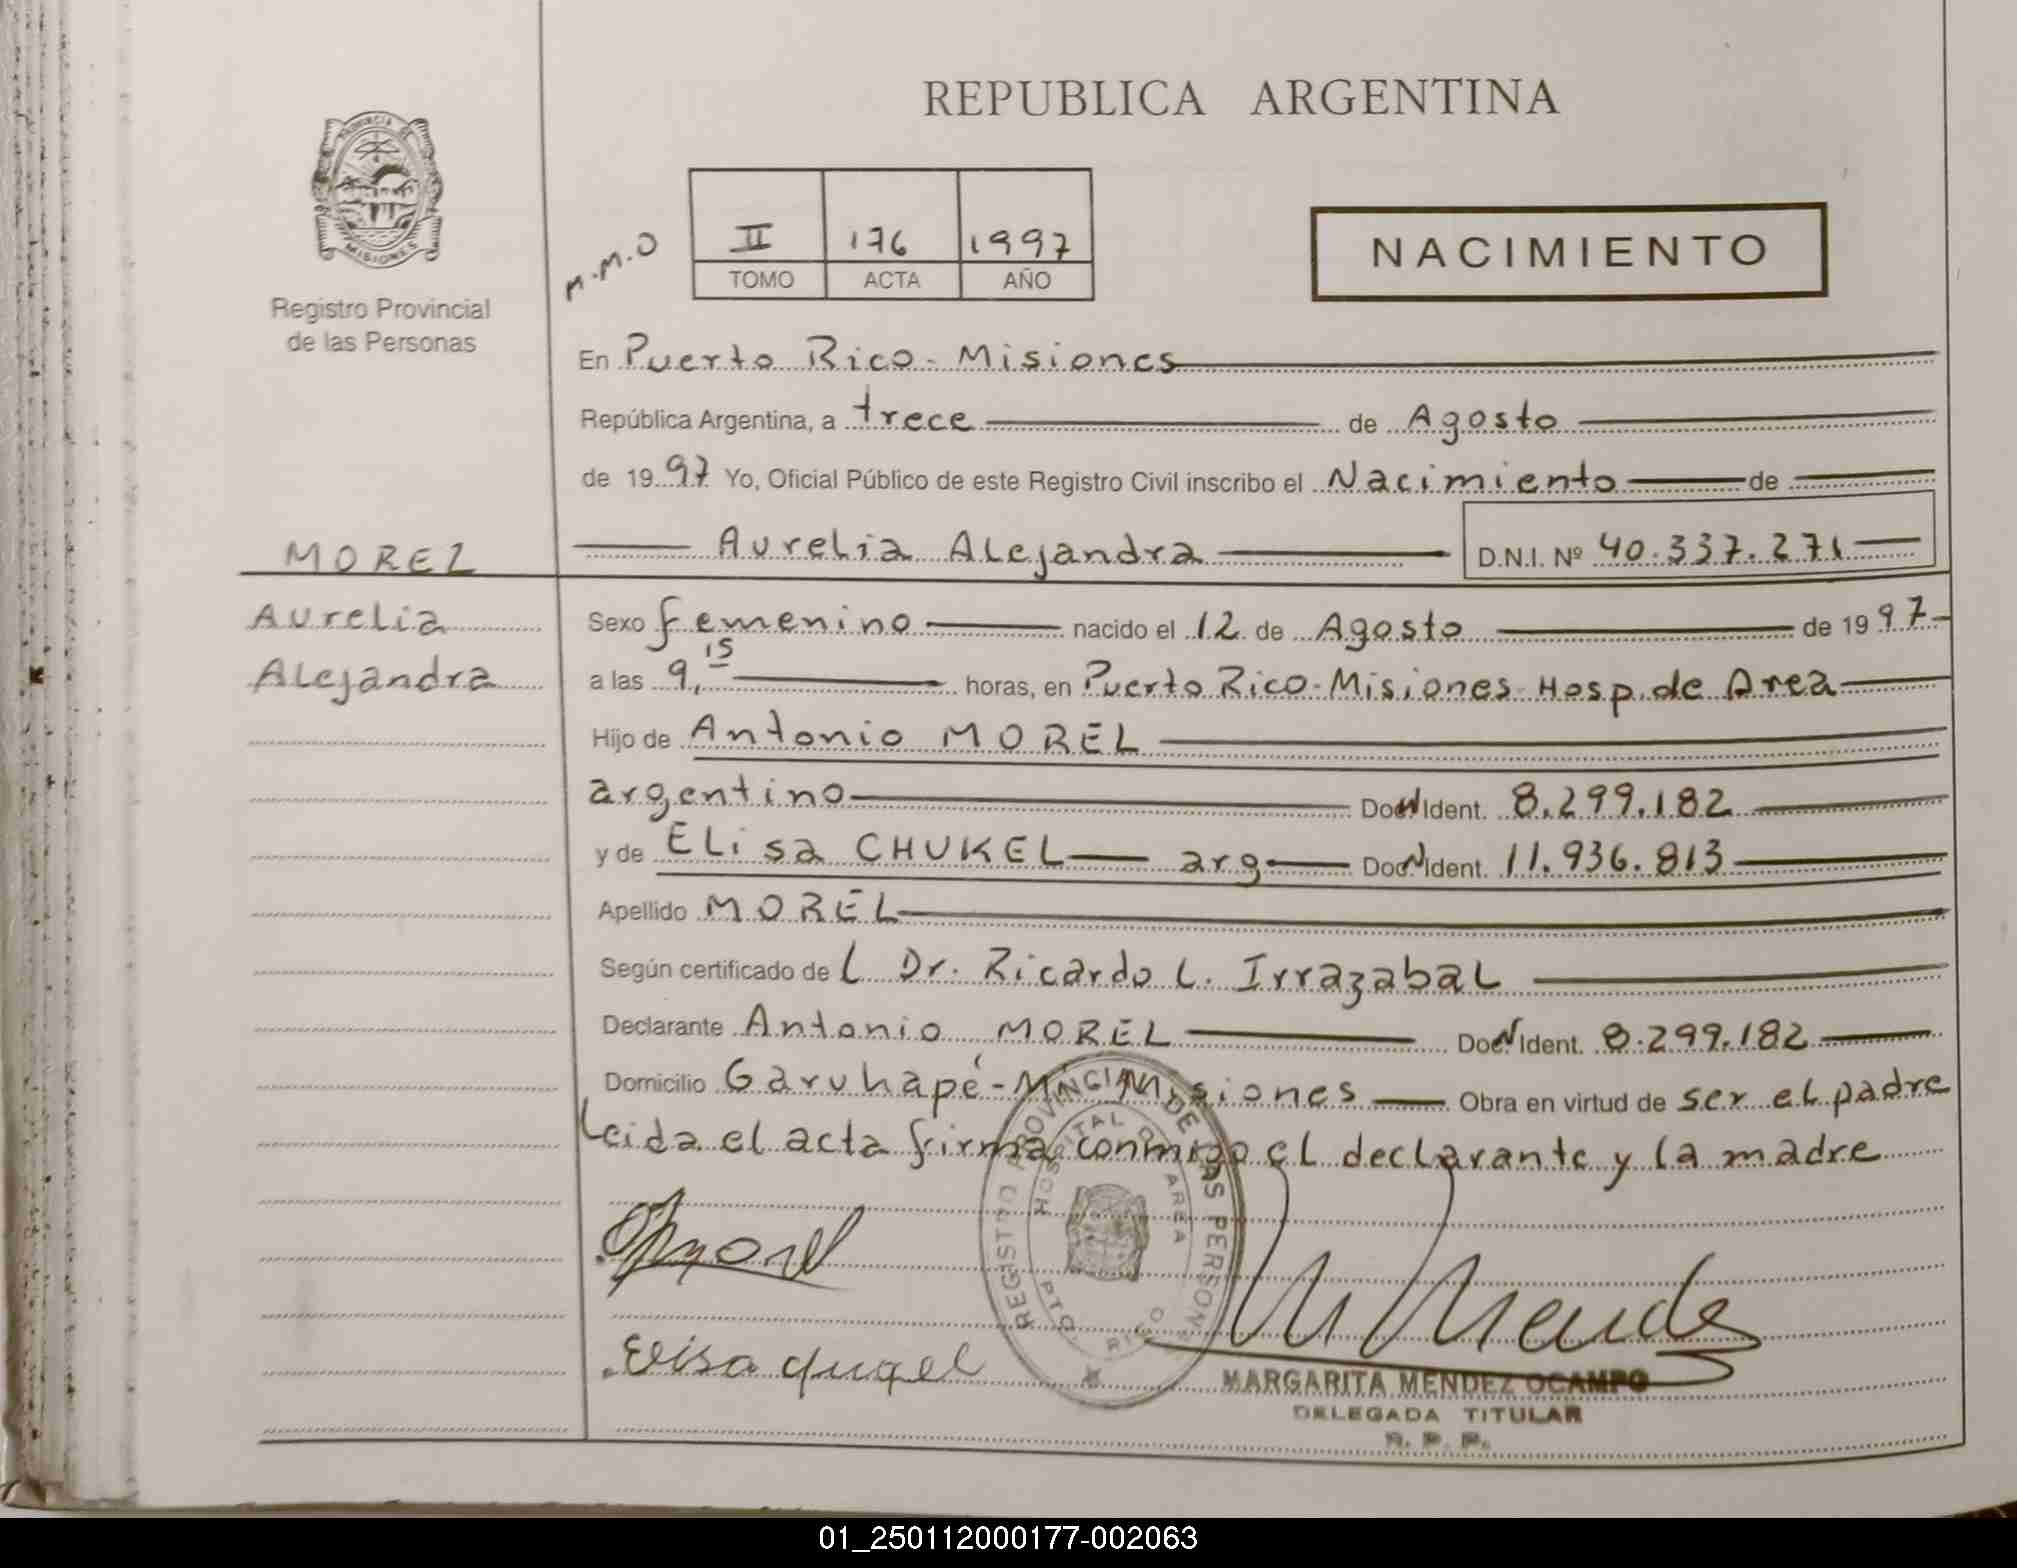 REPUBLICA ARGENTINA
PROVINCIA DE
MISIONES
Registro Provincial
de las Personas
M.M.O
II 176 1997
TOMO ACTA AÑO
NACIMIENTO
En Puerto Rico - Misiones
República Argentina, a trece de Agosto
de 1997 Yo, Oficial Público de este Registro Civil inscribo el Nacimiento de
MOREL
Aurelia Alejandra D.N.I. Nº 40.337.271
Aurelia
Alejandra
Sexo femenino nacido el 12 de Agosto de 1997
a las 9,15 horas, en Puerto Rico - Misiones - Hosp. de Area
Hijo de Antonio MOREL
argentino Doc. N Ident. 8.299.182
y de Elisa CHUKEL arg Doc. N Ident. 11.936.813
Apellido MOREL
Según certificado del Dr. Ricardo L. Irrazabal
Declarante Antonio MOREL Doc. N Ident. 8.299.182
Domicilio Garuhapé - Misiones Obra en virtud de ser el padre
Leida el acta firma conmigo el declarante y la madre
REGISTRO PROVINCIAL DE LAS PERSONAS
HOSPITAL DE AREA
PTO. RICO
Morel
Elisa
M Mendez
MARGARITA MENDEZ OCAMPO
DELEGADA TITULAR
R. P. P.
01_250112000177-002063